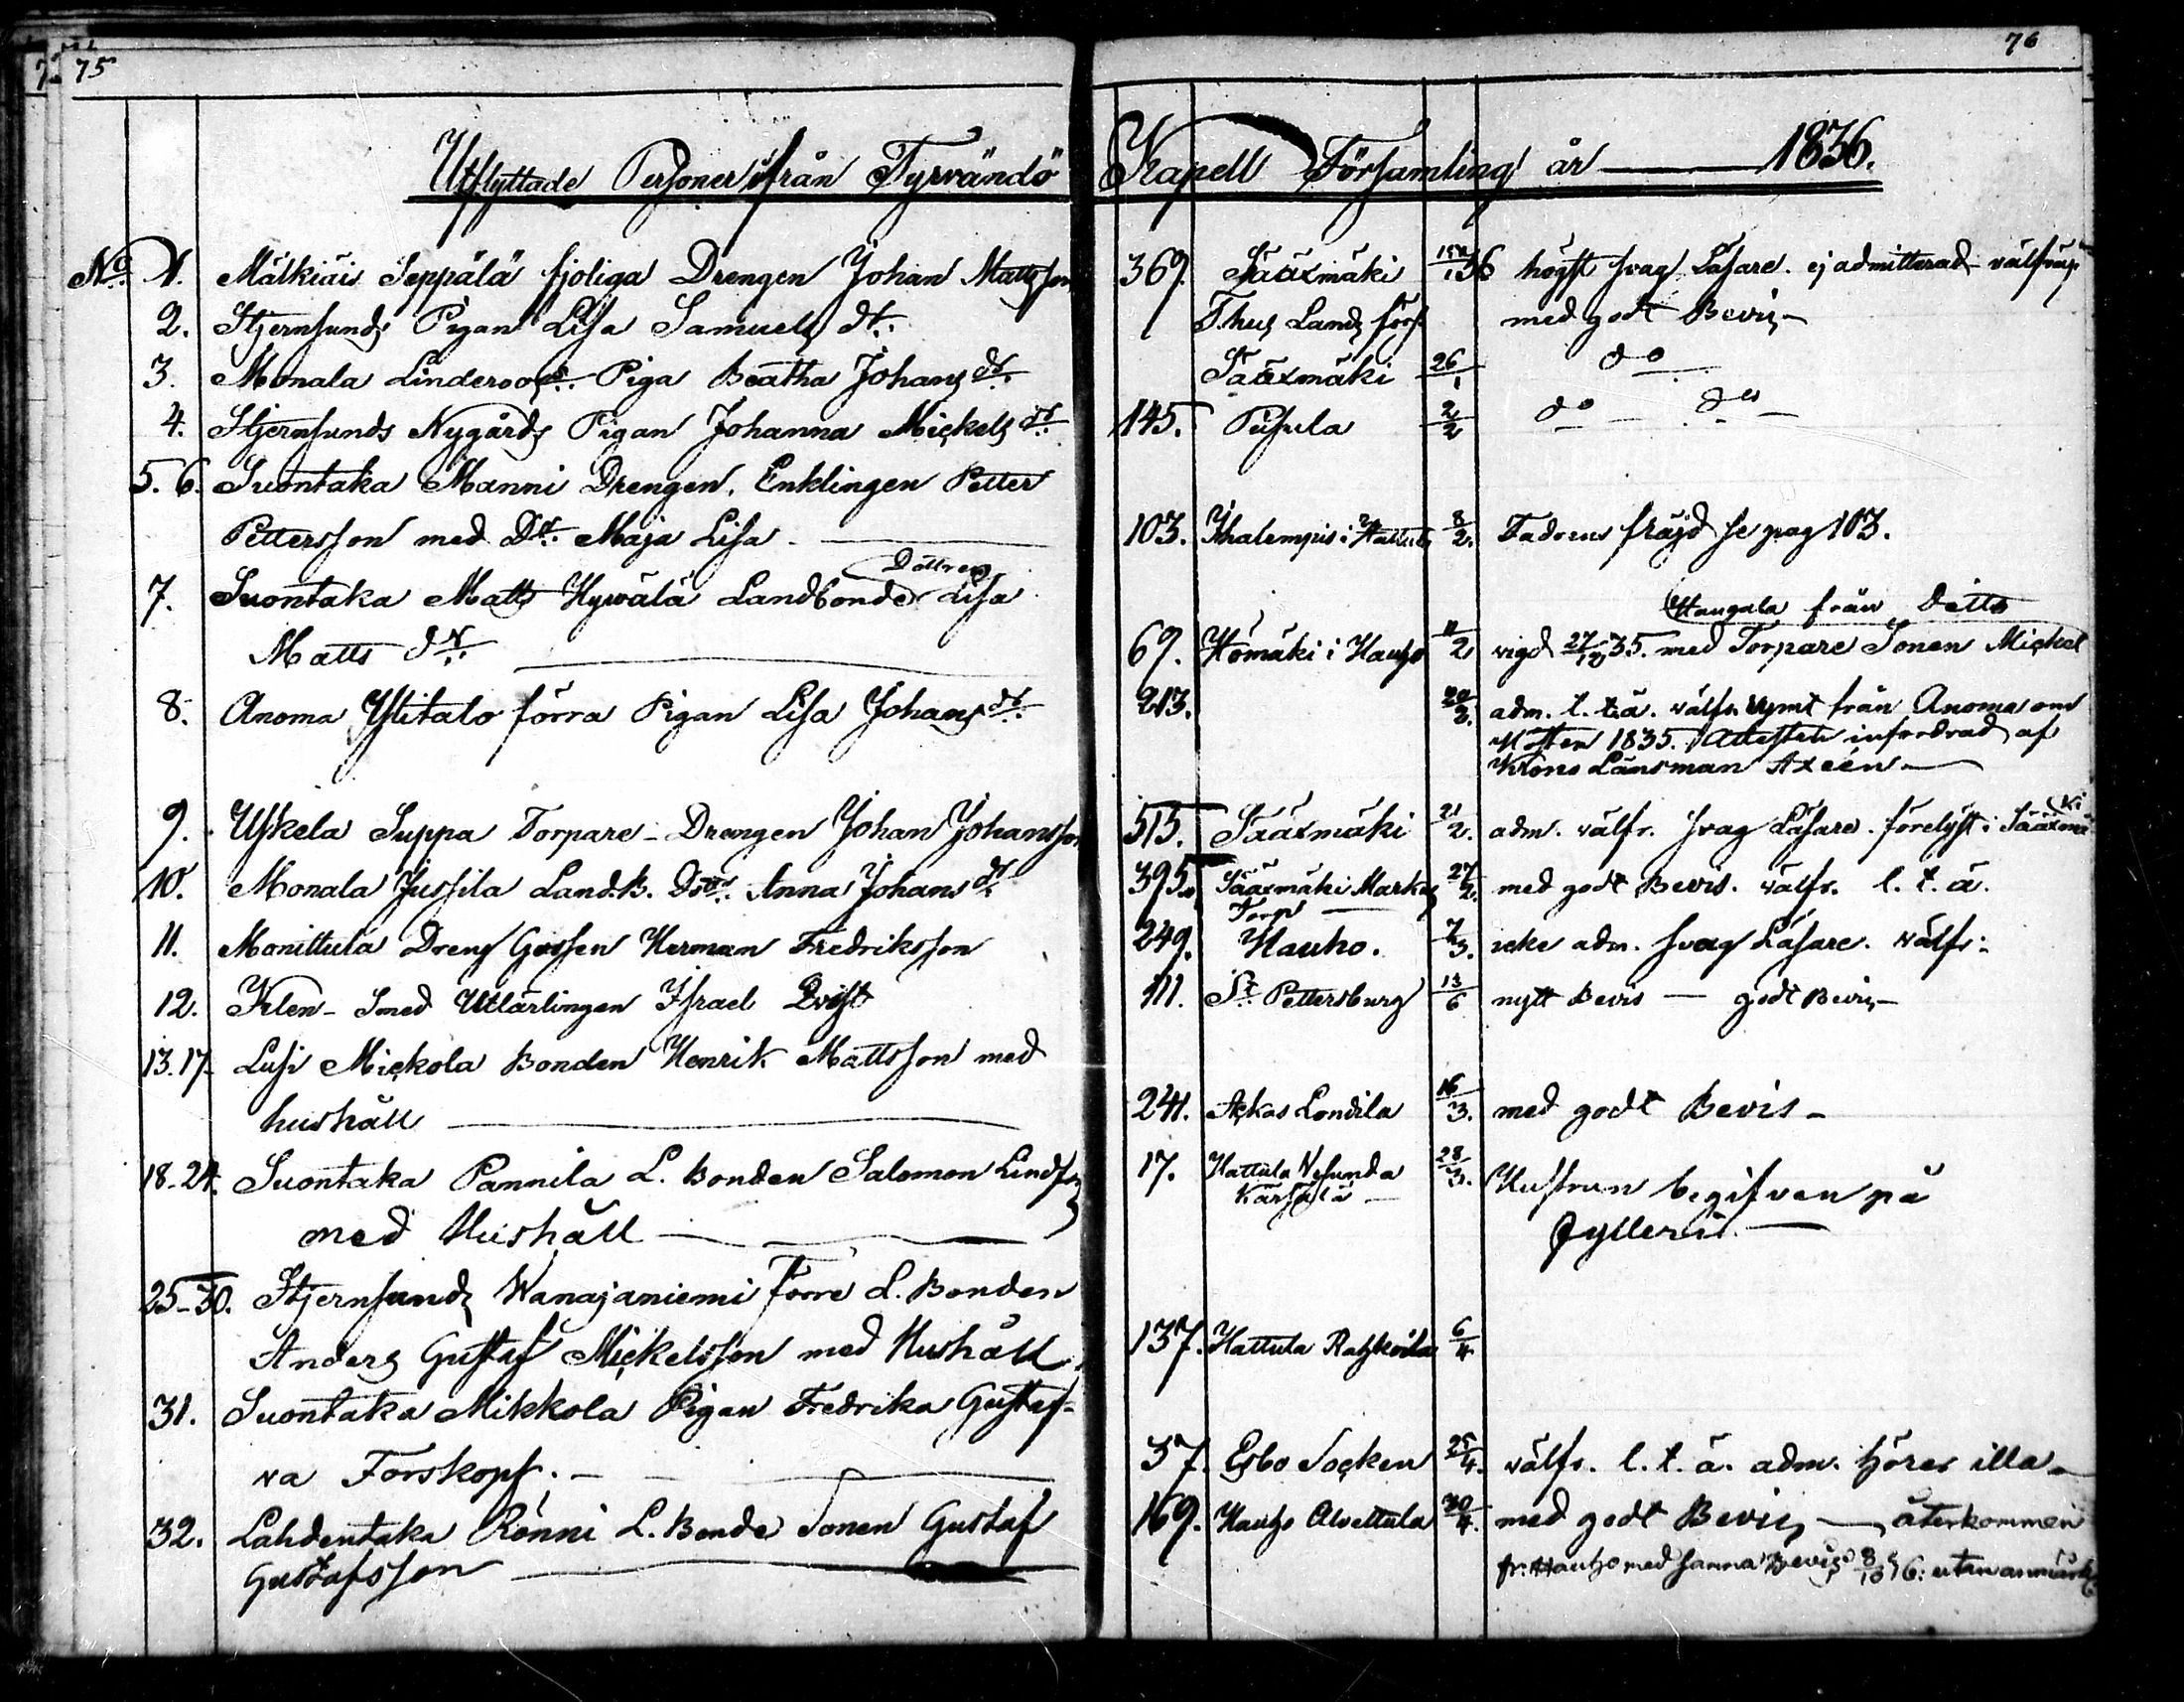 75
Utflyttade Personer ifrån Tyrvändö
No. 1. Mälkiäis Seppälä fjoliga Drengen Johan Mattsson
2. Stjernsunds Pigan Lisa Samuels dr.
3. Monala Linderoos Piga Beatha Johans dr.
4. Stjernsunds Nygårds Pigan Johanna Mickels dr.
5. 6. Suontaka Manni Drengen, Enklingen Petter
Pettersson med Dr. Maja Lisa
Dottren
7. Suontaka Matts Hywälä Landbonde Lisa
Matts dr.
8. Anoma Ylitalo förra Pigan Lisa Johans dr.
9. Uskela Suppa Torpare-Drengen Johan Johansson
10. Monala Jussila Land.B. Dottr. Anna Johans dr.
11. Monittula Dreng Gossen Herman Fredriksson
12. Klen-Smed Utlärlingen Israel Qvist
13.17. Lusi Mickola Bonden Henrik Mattsson med
hushåll
18-24. Suontaka Pannila L. Bonden Salomon
med Hushåll
25-30. Stjernsunds Wanajaniemi Förre L. Bonden
Anders Gustaf Mickelsson med Hushåll
31. Suontaka Mikkola Pigan Fredrika Gustaf-
va Forskopf.
32. Lahdentaka Rönni L. Bonde Sonen Gustaf
Gustafsson
76
Kapell Församling år 1836.
369. Sääxmäki 36 högst svag Läsare. ej admitterad
T.hus Lands förs. med godt Bevis
Sääxmäki 26/1 do
145. Pusula 2/2 do do
103. Ihalempis i Hattula 8/2. Faderns fräjd se pag 103.
Haugala från detta
69. i Hauho 11/2 vigd 27/12 35. med Torpare Sonen Mickel
213. 20/2. adm. l. t. ä. välfr. rymt från Anoma om
Hösten 1835. Attesten infordrad af
Krono Länsman Axeen
515. Sääxmäki 21/2. adm. välfr. svag Läsare. förelyst i Sääxmäki
395. Sääxmäki Markas 27/2. med godt Bevis. välfr. l. t. ä.
Torp
249. Hauho. 7/3. icke adm. svag Läsare. välfr.
111. St. Pettersburg 13/6 nytt Bevis — godt Bevis
241. Ackas Londila 16/3. med godt Bevis
17. Hattula Nesunda 28/3. Hustrun begifven på
Kärsälä fylleri
137. Hattula Rahkoila 6/4
37. Esbo Socken 25/4. välfr. l. t. ä. adm. hörer illa
169. Hauho Alvettula 30/4. med godt Bevis — återkommen
fr. Hauho med samma Bevis 8/10 36: utan anmärk.